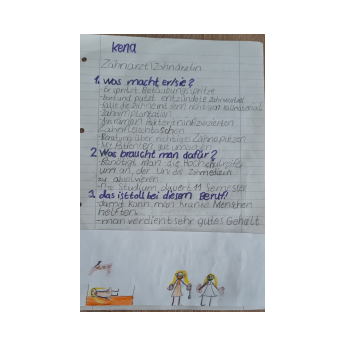 kena
Zahnarzt/Zahnärztin
1. Was macht er/sie?
- Er spritzt Betäubungsspritze
- bort und putzt entzündete Zahnwurzel
- füllt die Zähne mit
Zahnimplantation
Zahnfleischtaschen
- Beratung über richtiges Zähneputzen
2. Was braucht man dafür?
- Benötigt man die Hochschulreife
um an der Uni die Zahnmedizin
zu absolvieren
- Die Studium dauert 11 Semester
3. das ist toll bei diesem Beruf!
- damit kann man kranke Menschen
helfen.
- man verdient sehr gutes Gehalt